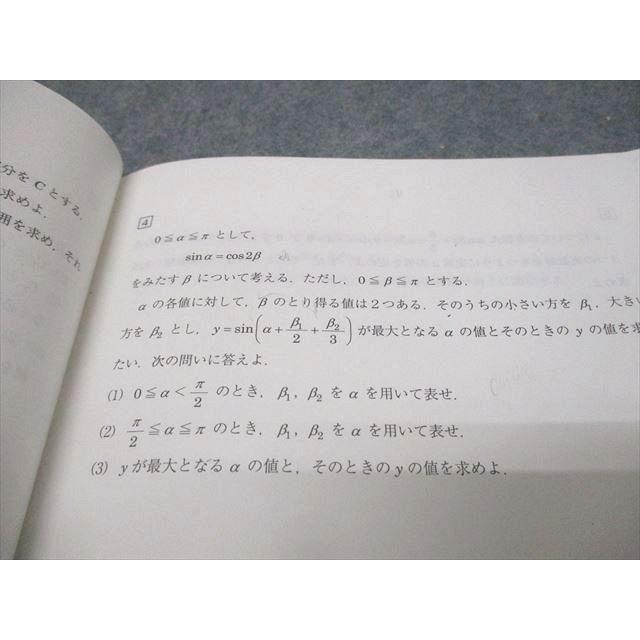 分をCとする.
求めよ.
用を求め,それ
4
0≦α≦πとして,
sinα=cos2β
をみたすβについて考える.ただし,0≦β≦πとする.
αの各値に対して,βのとり得る値は2つある.そのうちの小さい方をβ₁,大きい
方をβ₂とし,y=sin(α+β₁/2+β₂/3)が最大となるαの値とそのときのyの値を求
たい.次の問いに答えよ.
(1) 0≦α<π/2のとき,β₁,β₂をαを用いて表せ.
(2) π/2≦α≦πのとき,β₁,β₂をαを用いて表せ.
(3) yが最大となるαの値と,そのときのyの値を求めよ.